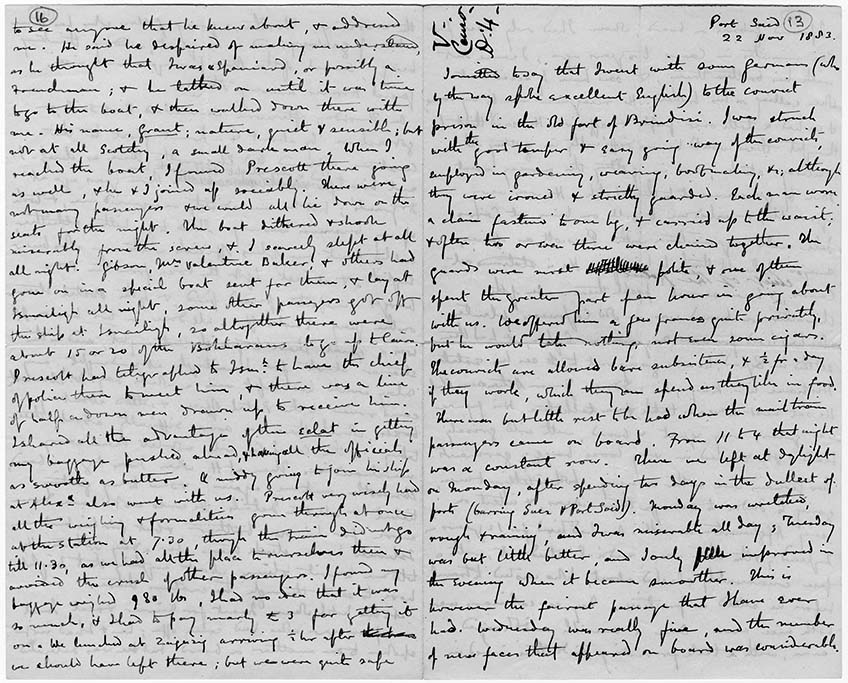 16
to see anyone that he knew about, & addressed
me. He said he despaired of making me understand,
as he thought that I was a Spaniard, or possibly a
Frenchman; & he talked on until it was time
to go to the boat, & then walked down there with
me. His name, Grant; nature, quiet & sensible; but
not at all Scotchy, a small dark man. When I
reached the boat, I found Prescott there going
as well, & he & I joined up sociably. There were
not many passengers & we could all lie down on the
seats for the night. The boat dithered & shook
miserably from the screw, & I scarcely slept at all
all night. Gibson, Mrs Valentine Baker & others had
gone on in a special boat sent for them, & lay at
Ismailiyeh all night, some other passengers got off
the ship at Ismailiyeh, so altogether there were
about 15 or 20 of the Bokharans to go up to Cairo.
Prescott had telegraphed to Ism. to have the chief
of police there to meet him, & there was a line
of half a dozen men drawn up to receive him.
I shared all the advantage of this eclat in getting
my baggage pushed ahead, & having all the officials
as smooth as butter. A middy going to join his ship
at Alexa also went with us. Prescott very wisely had
all the weighing & formalities gone through at once
at the station at 7.30, though the train did not go
till 11.30, as we had all the place to ourselves then &
avoided the crush of other passengers. I found my
baggage weighed 980 lbs, I had no idea that it was
so much, & I had to pay nearly £3 for getting it
on. We lunched at Zigazig arriving ½ hr after
we should have left there; but we were quite safe
13
V-
Di 4-
Port Said
22 Nov 1883.
I today that I went with some Germans (who
by the way spoke excellent English) to the convict
prison in the old fort of Brindisi. I was struck
with the good temper & easy going way of the convicts,
employed in gardening, weaving, bootmaking, &c; although
they were ironed & strictly guarded. Each man wore
a chain fastened to one leg, & carried up to the waist;
& often two or even three were chained together. The
guards were most polite, & one of them
spent the greater part of an hour in going about
with us. We offered him a few francs quite privately,
but he would take nothing, not even some cigars.
The convicts are allowed bare subsistence, & ½ fr a day
if they work, which they can spend as they like in food.
There was but little rest to be had when the mail train
passengers came on board. From 11 to 4 that night
was a constant row. Then we left at daylight
on Monday, after spending two days in the dullest of
port (barring Suez & Port Said). Monday was wretched,
rough & raining, and I was miserable all day; Tuesday
was but little better, and I only improved in
the evening when it became smoother. This is
however the fairest passage that I have ever
had. Wednesday was really fine, and the number
of new faces that appeared on board was considerable.